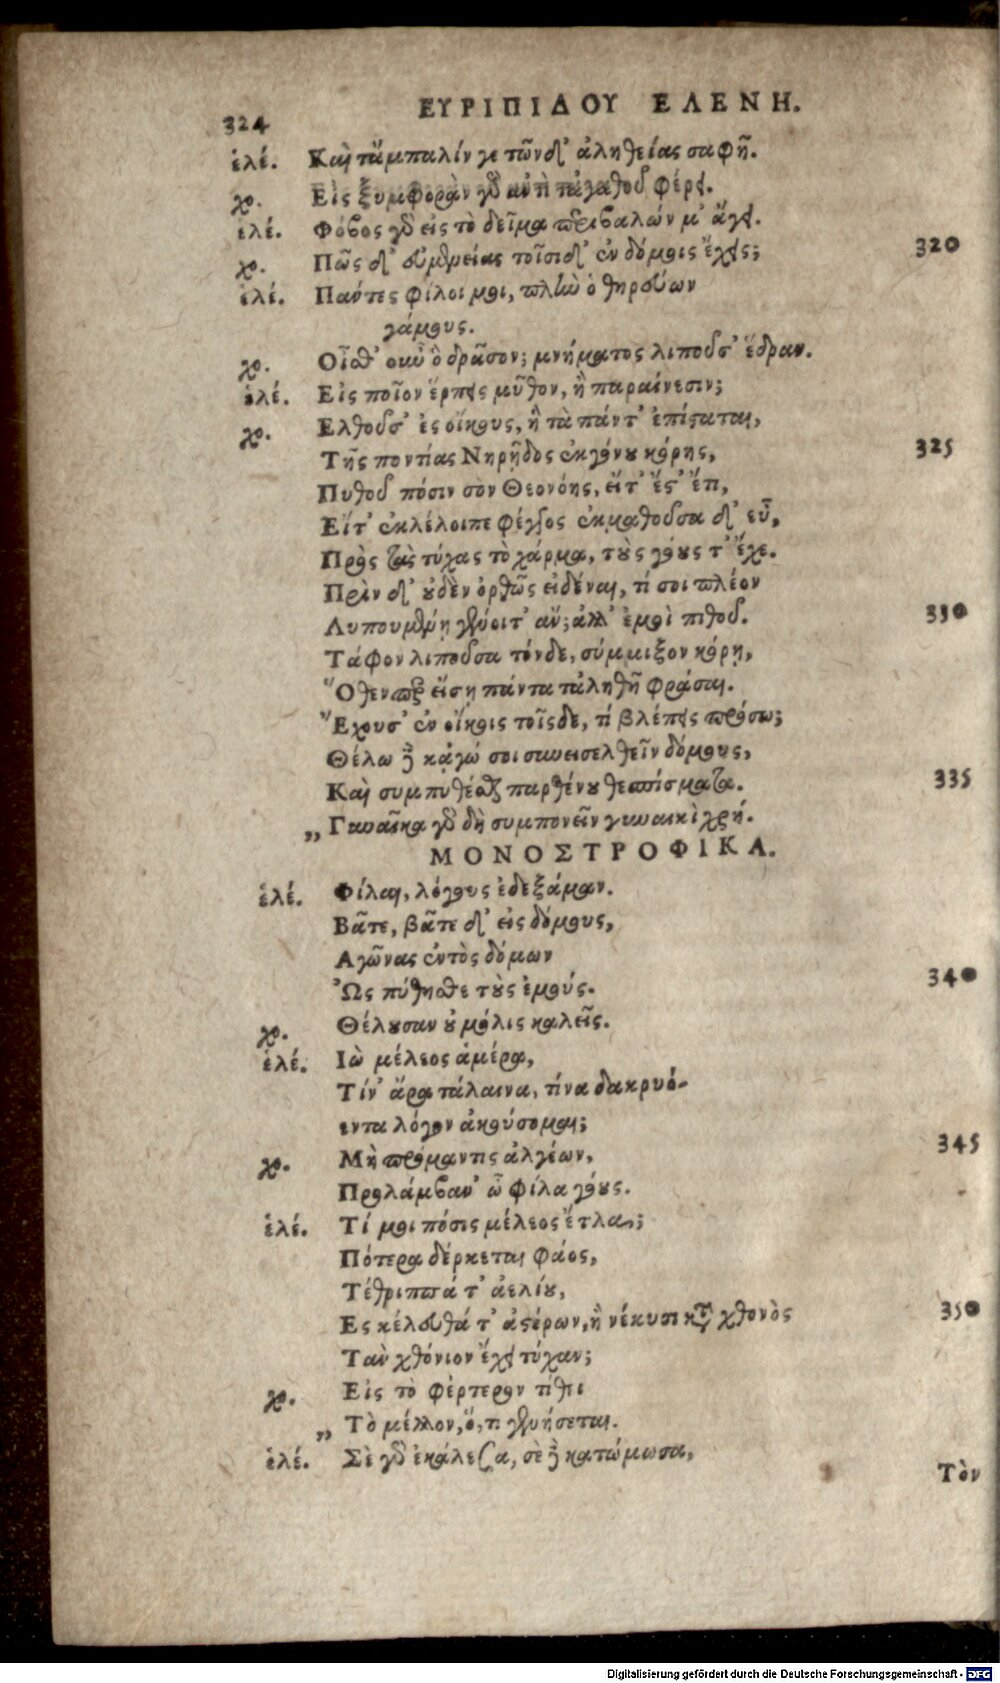 324 ΕΥΡΙΠΙΔΟΥ ΕΛΕΝΗ.
ἑλέ. Καὶ τἄμπαλίν γε τῶνδ' ἀληθείας σαφῆ.
χο. Εἰς ξυμφορὰν γὰρ ἀντὶ τἀγαθοῦ φέρει.
ἑλέ. Φόβος γὰρ εἰς τὸ δεῖμα περιβαλών μ' ἄγει.
χο. Πῶς δ' εὐμενείας τοῖσιδ' ἐν δόμοις ἔχεις; 320
ἑλέ. Πάντες φίλοι μοι, πλὴν ὁ θηρεύων
γάμους.
χο. Οἶσθ' οὖν ὃ δρᾶσον; μνήματος λιποῦσ' ἕδραν.
ἑλέ. Εἰς ποῖον ἕρπεις μῦθον, ἢ παραίνεσιν;
χο. Ελθοῦσ' ἐς οἴκους, ἣ τὰ πάντ' ἐπίσταται,
Τῆς ποντίας Νηρῇδος ἐκγόνου κόρης, 325
Πυθοῦ πόσιν σὸν Θεονόης, εἴτ' ἔστ' ἔτι,
Εἴτ' ἐκλέλοιπε φέγγος ἐκμαθοῦσα δ' εὖ,
Πρὸς τὰς τύχας τὸ χάρμα, τοὺς γόους τ' ἔχε.
Πρὶν δ' οὐδὲν ὀρθῶς εἰδέναι, τί σοι πλέον
Λυπουμένῃ γένοιτ' ἄν; ἀλλ' ἐμοὶ πιθοῦ. 330
Τάφον λιποῦσα τόνδε, σύμμιξον κόρῃ,
Ὅθεν περ εἴσῃ πάντα τἀληθῆ φράσαι.
Ἔχουσ' ἐν οἴκοις τοῖσδε, τί βλέπεις πρόσω;
Θέλω δὲ κᾀγώ σοι συνεισελθεῖν δόμους,
Καὶ συμπυθέσθαι παρθένου θεσπίσματα. 335
„ Γυναῖκα γὰρ δὴ συμπονεῖν γυναικὶ χρή.
ΜΟΝΟΣΤΡΟΦΙΚΑ.
ἑλέ. Φίλαι, λόγους ἐδεξάμαν.
Βᾶτε, βᾶτε δ' εἰς δόμους,
Αγῶνας ἐντὸς δόμων
Ὡς πύθησθε τοὺς ἐμούς. 340
χο. Θέλουσαν οὐ μόλις καλεῖς.
ἑλέ. Ιὼ μέλεος ἁμέρα,
Τίν' ἄρα τάλαινα, τίνα δακρυό-
εντα λόγον ἀκούσομαι;
χο. Μὴ πρόμαντις ἀλγέων, 345
Προλάμβαν' ὦ φίλα γόους.
ἑλέ. Τί μοι πόσις μέλεος ἔτλα;
Πότερα δέρκεται φάος,
Τέθριππά τ' ἀελίου,
Ες κέλευθά τ' ἀστέρων, ἢ νέκυσι κατὰ χθονὸς 350
Τὰν χθόνιον ἔχει τύχαν;
χο. Εἰς τὸ φέρτερον τίθει
„ Τὸ μέλλον, ὅ, τι γενήσεται.
ἑλέ. Σὲ γὰρ ἐκάλεσα, σὲ δὲ κατώμοσα,
Τὸν
Digitalisierung gefördert durch die Deutsche Forschungsgemeinschaft - DFG